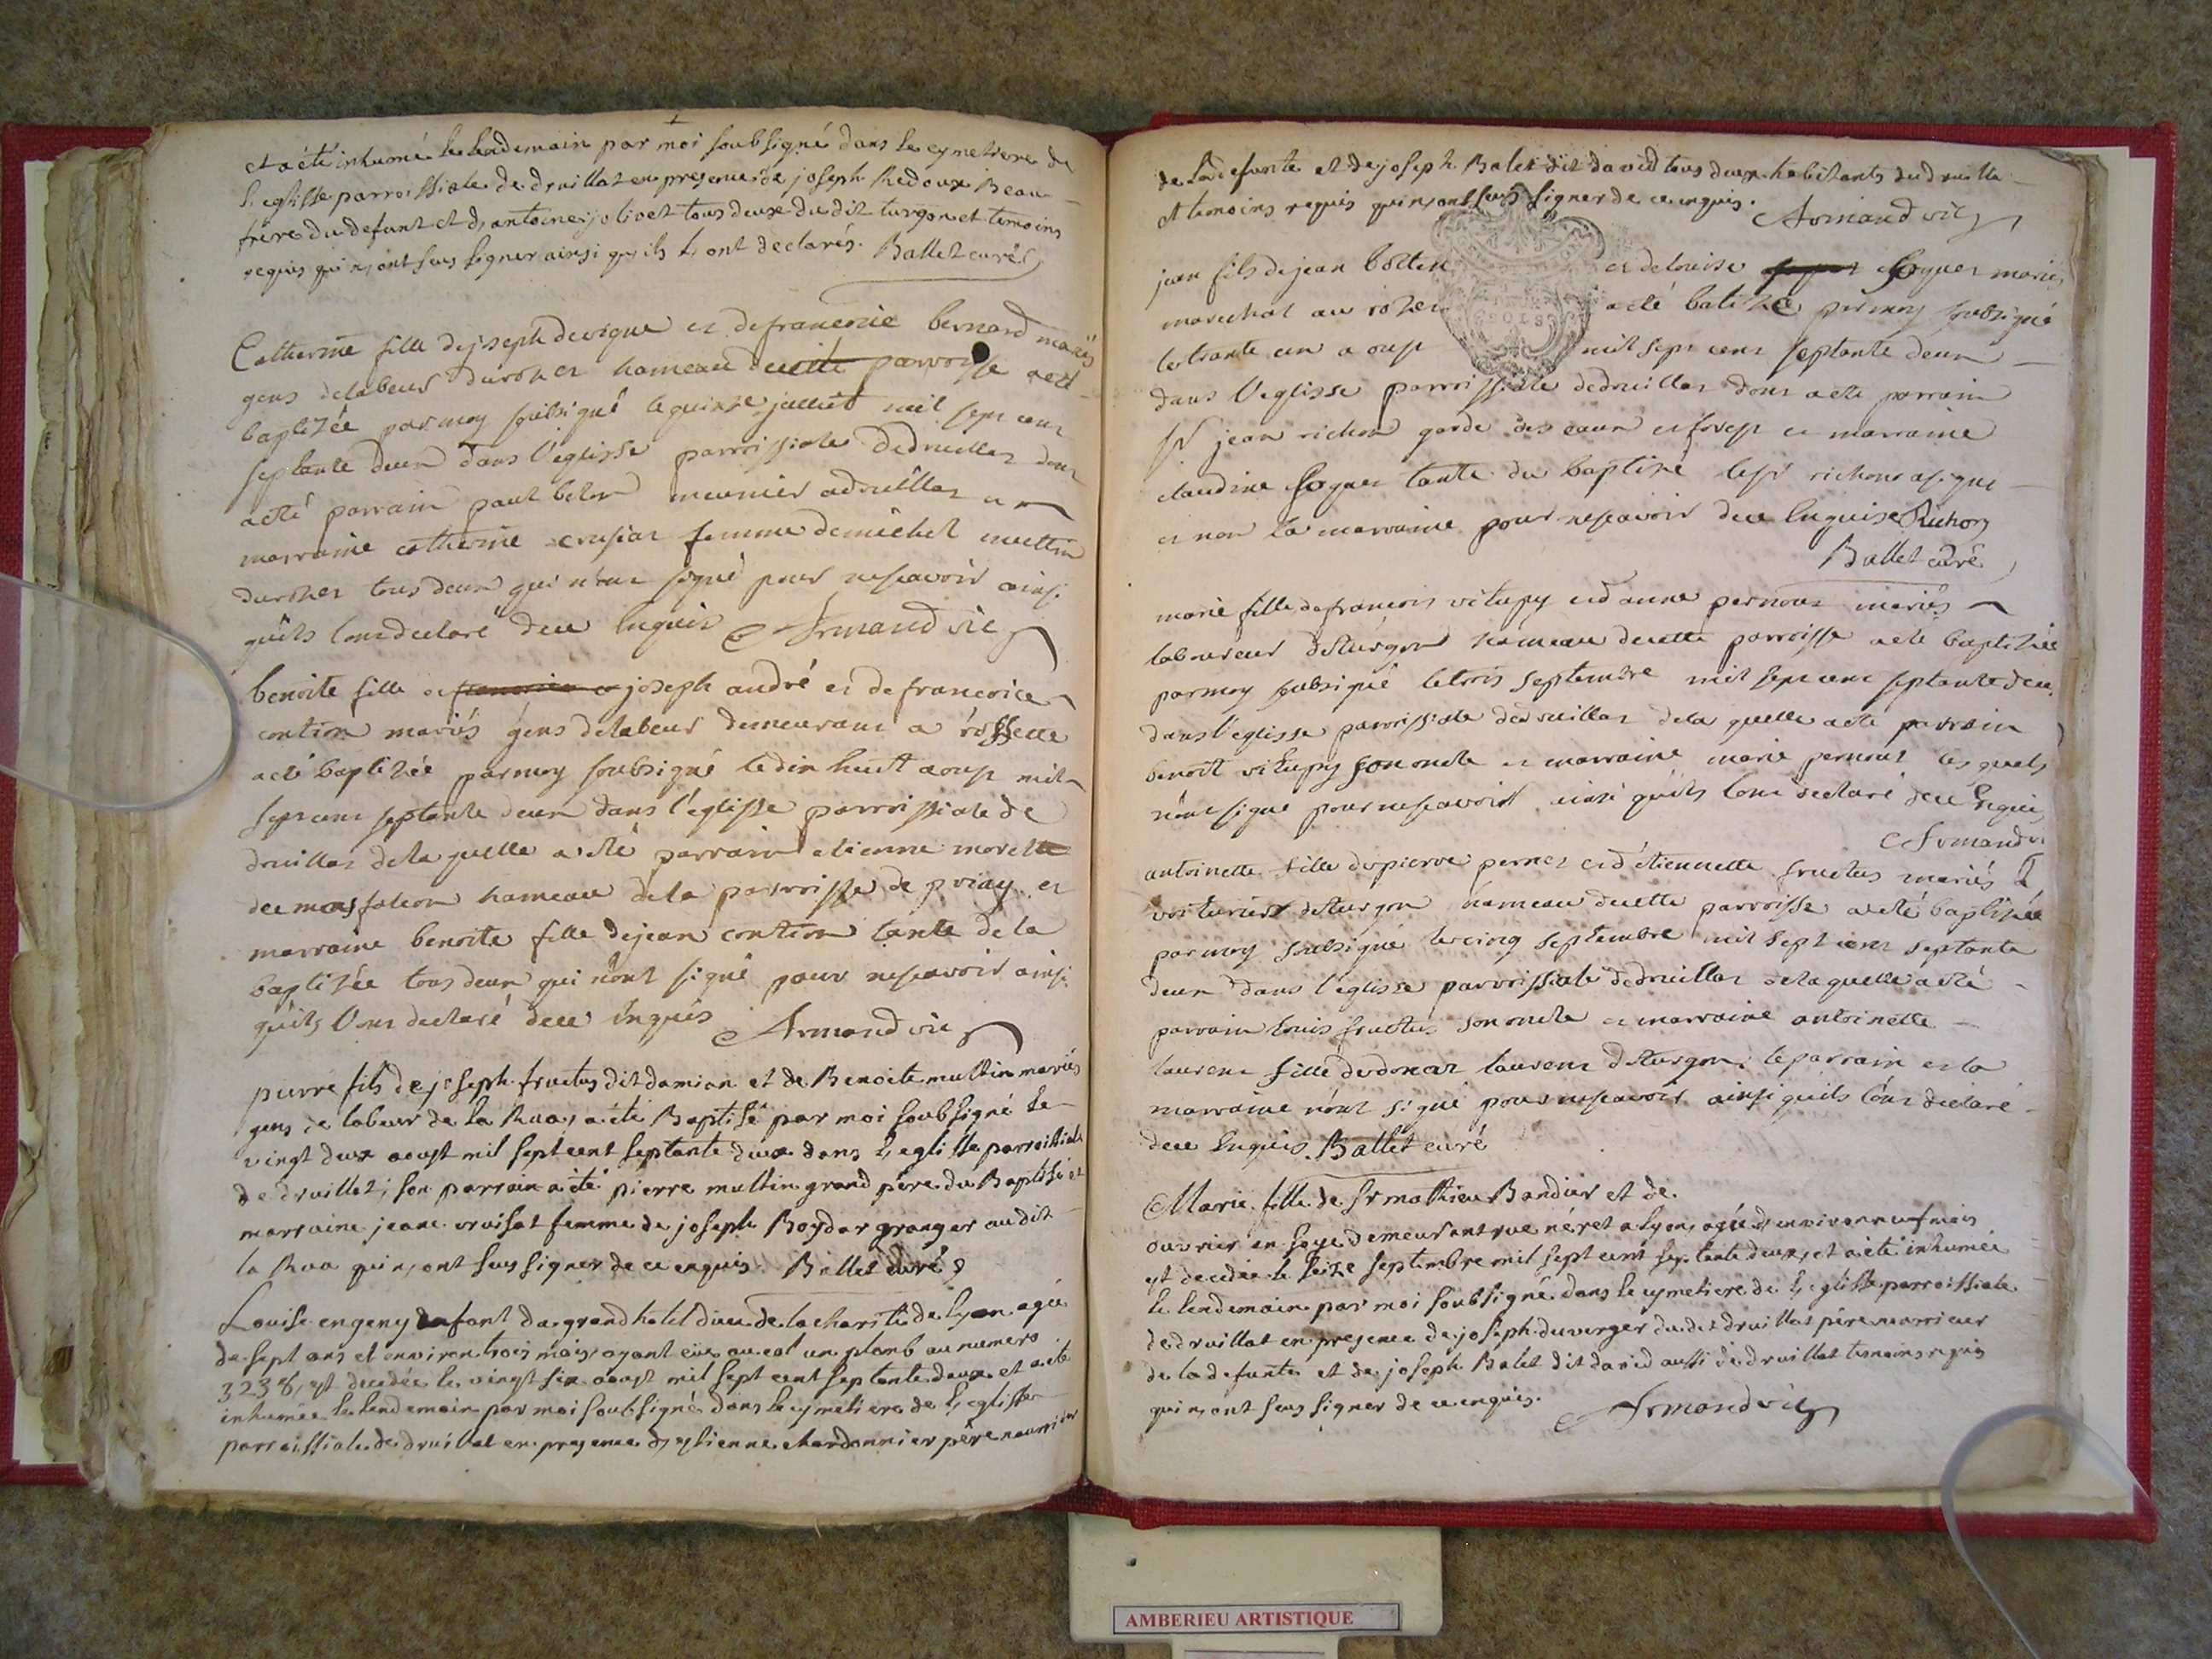 et a été inhumé le lendemain par moi soubsigné dans le cymetiere de
l'eglisse parroissiale de druillat en presence de joseph Redoux Beau
frère du defunt et d'antoine jolivet tous deux du dit turgon et temoins
requis qui n'ont sus signer ainsi qu'ils l'ont declarés. Ballet curé
Catherine fille de joseph devigue et de francoise bernard mariés
gens de labeur du rozet hameau de cette parroisse a eté
baptizée par moy soubsigné le quinze julliet mil sept cent
septante deux dans l'eglisse parroissiale de druillat dont
a eté parrain paul beton meunier a druillat et
marraine catherine crusiat femme de michel multin
du rozet tous deux qui n'ont signé pour ne scavoir ainsi
qu'ils l'ont declaré de ce enquis Armand vic
benoite fille de joseph andré et de francoise
contion mariés gens de labeur demeurant a rossette
a eté baptizée par moy soubsigné le dix huit aoust mil
sept cent septante deux dans l'eglisse parroissiale de
druillat de la quelle a eté parrain etienne morette
de mas falcon hameau de la parroisse de priay et
marraine benoite fille de jean contion tante de la
baptizée tous deux qui n'ont signé pour ne scavoir ainsi
qu'ils l'ont declaré de ce enquis Armand vic
pierre fils de joseph fructus dit damian et de Benoite multin mariés
gens de labeur de la Rua, a été Baptisé par moi soubsigné le
vingt deux aoust mil sept cent septante deux dans l'eglisse parroissiale
de druillat; son parrain a été pierre multin grand père du Baptisé et
marraine jeane cruisat femme de joseph Boydar granger au dit
la Rua qui n'ont sus signer de ce enquis. Ballet curé
Louise engeny enfant du grand hotel dieu de la charité de lyon agée
de sept ans et environ trois mois, ayant eue au col un plomb au numero
3238, est decedée le vingt six aoust mil sept cent septante deux et a eté
inhumée le lendemain par moi soubsigné dans le cymetiere de l'eglisse
parroissiale de druillat en presence d'estienne chardonnier père nourricier
de la defunte et de joseph Balet dit david tous deux habitants du druillat
et temoins requis qui n'ont sus signer de ce enquis. Armand vic
jean fils de jean et de louise foguet mariés
marechal au rozet a eté batizé par moy soubsigné
le trante un aoust mil sept cent septante deux
dans l'eglisse parroissiale de druillat dont a eté parrain
Sr jean richon garde des eaux et forest et marraine
claudine foguet tante du baptizé le sr richon a signé
et non la marraine pour ne scavoir de ce enquise Richon
Ballet curé
marie fille de francois vitupy et d'anne pernout mariés
laboureur de turgon hameau de cette parroisse a eté baptizée
par moy soubsigné le trois septembre mil sept cent septante deux
dans l'eglisse parroissiale de druillat de la quelle a eté parrain
benoît vitupy son oncle et marraine marie pernout les quels
n'ont signé pour ne scavoir ainsi qu'ils l'ont declaré de ce enquis
Armand vic
antoinette fille de pierre pernet et d'étiennette fructus mariés
voiturier de turgon hameau de cette parroisse a eté baptizée
par moy soubsigné le cinq septembre mil sept cent septante
deux dans l'eglisse parroissiale de druillat de la quelle a eté
parrain louis fructus son oncle et marraine antoinette
laurent fille de donat laurent de turgon, le parrain et la
marraine n'ont signé pour ne scavoir ainsi qu'ils l'ont declaré
de ce enquis. Ballet curé
Marie fille de Sr mathieu Bandier et de
ouvrier en soye demeurant rue néret a lyon, agée d'environ neuf mois
est decedée le seize septembre mil sept cent septante deux, et a été inhumée
le lendemain par moi soubsigné dans le cymetiere de l'eglisse parroissiale
de druillat en presence de joseph duverger du dit druillat père nourricier
de la defunte et de joseph Balet dit david aussi de druillat temoins requis
qui n'ont sus signer de ce enquis. Armand vic
AMBERIEU ARTISTIQUE